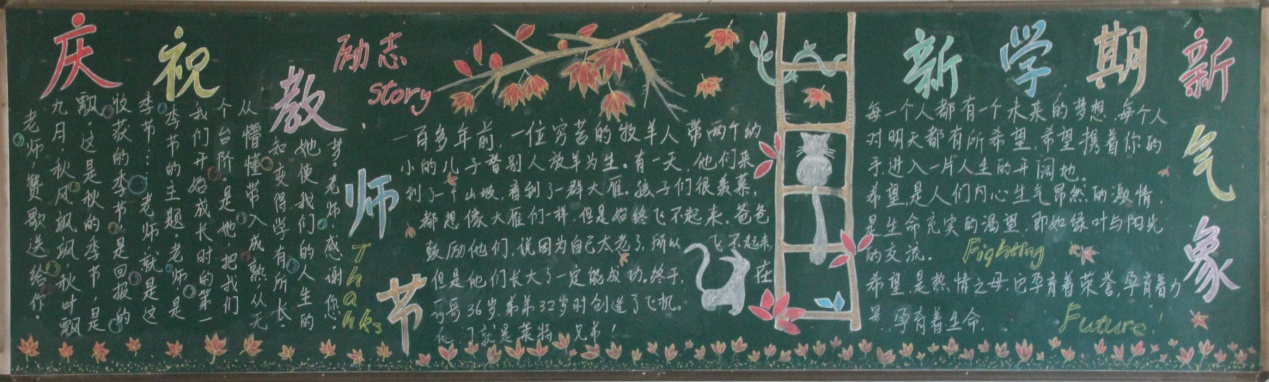 庆祝教师节
老师赞歌送给你
九月,秋风飒飒,秋叶飘
飘,这是秋的季节,是
收获的季节,是回报的
季节…老师就是这
季节的主题,老师是
我们开始成长时的第一
个台阶,是她,把我们
从懵懂带入成熟,从无
知变得学有所长.
她使我们的人生的
梦,老师,感谢您.
Thanks
励志
story
一百多年前,一位穷苦的牧羊人带两个幼
小的儿子替别人放羊为生。有一天,他们来
到了一个山坡,看到了一群大雁.孩子们很羡慕,
都想像大雁们一样,但是始终飞不起来.爸爸
鼓励他们,说因为自己太老了,所以飞不起来
但是他们长大了一定能成功.终于,在
哥哥36岁.弟弟32岁时创造了飞机.
他们就是莱特兄弟!
新学期新气象
每一个人都有一个未来的梦想.每个人
对明天都有所希望,希望携着你的
手,进入一片人生的开阔地。
希望,是人们内心生气昂然的激情,
是生命充实的渴望,即如绿叶与阳光
的交流。 Fighting
希望,是热情之母,它孕育着荣誉,孕育着力
量,孕育着生命.
Future!